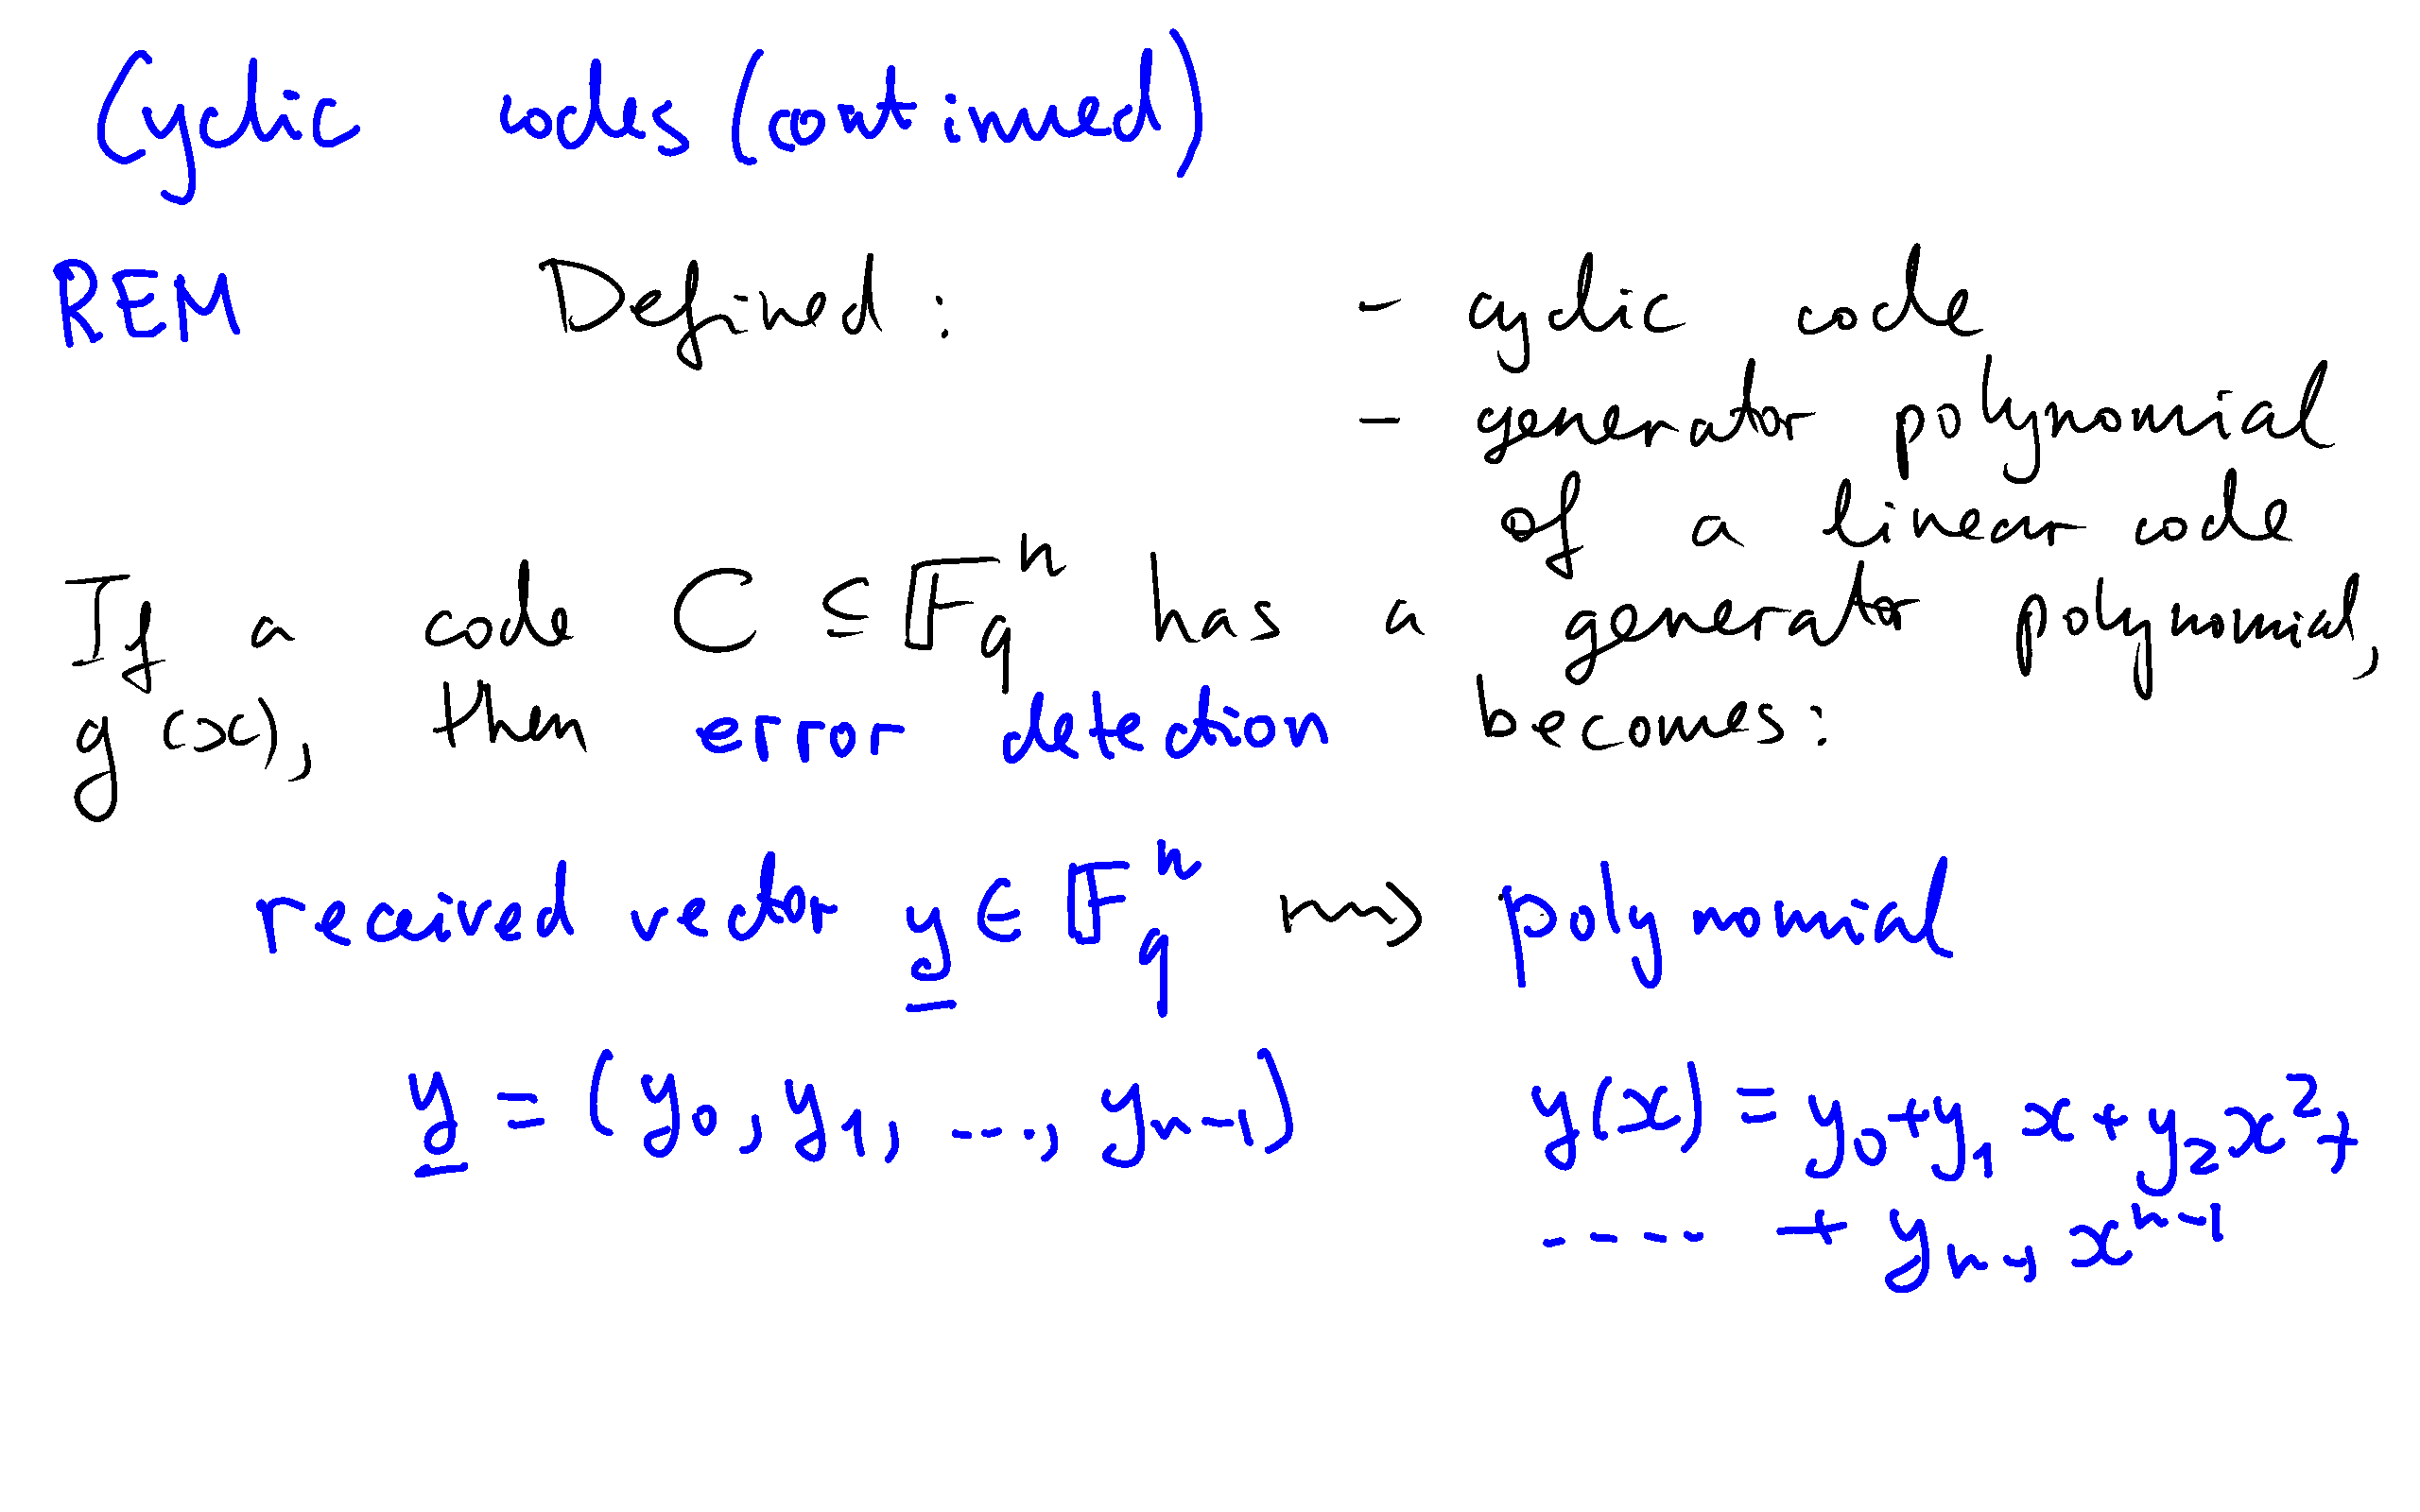 Cyclic codes (continued)
REM Defined: - cyclic code
- generator polynomial
of a linear code
If a code C ⊆ 𝔽_q^n has a generator polynomial,
g(x), then error detection becomes:
received vector y̲ ∈ 𝔽_q^n ⇝ polynomial
y̲ = (y_0, y_1, ..., y_{n-1}) y(x) = y_0 + y_1 x + y_2 x^2 +
.... + y_{n-1} x^{n-1}